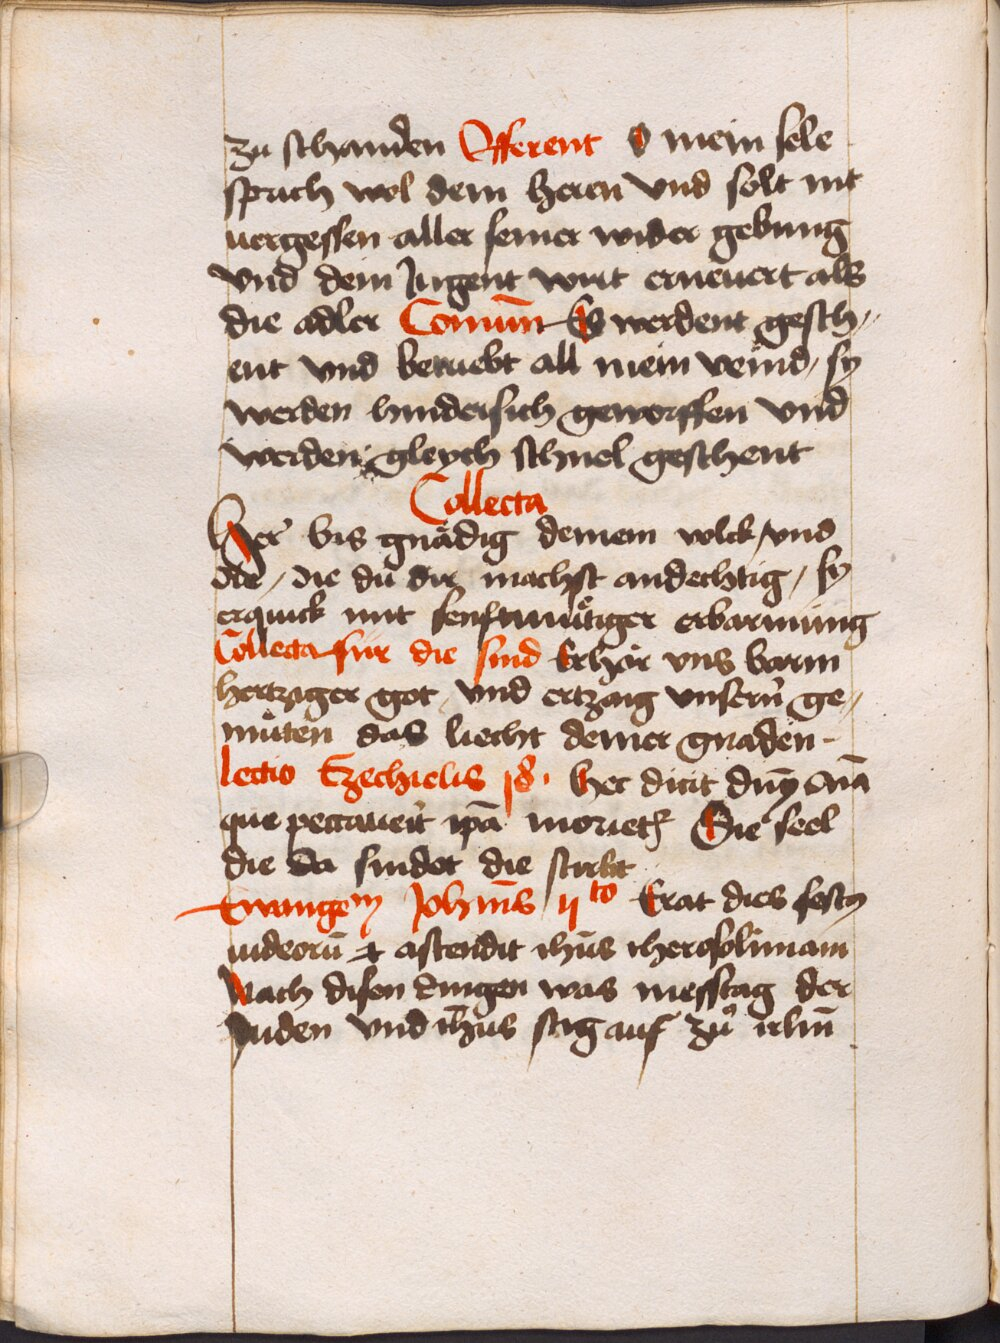 zu schanden Offerent O mein sele
sprich wol dem heren vnd solt nit
uergessen aller seiner wider gebung
vnd dein Jugent wirt erneuert als
die adler Comūn Es werdent gesch„
ent vnd betruebt all mein veind / sy
werden hindersich geworffen vnd
werden gleych schnel geschent
Collecta
Her bis gnädig deinem volck / vnd
die / die dü dir machst andechtig / sy
erquick mit senftmu̇tiger erbarmung
Collecta für die sind Erhör vns barm
hertziger got / vnd ertzaig vnsern̄ ge„
mu̇ten das liecht deiner gnaden -
lectio Ezechielis 18. hec dicit dn̄s Aīa
que peccauerit ip̄a moriet͛ Die seel
die da sindet die stirbt
Ewangeᵐ Joh̄nis ijto Erat dies festꝰ
iudeorū et ascendit ih̄us iherosolimam
Nach disen dingen was messtag der
Juden vnd ih̄us stig auf zů irlm̄